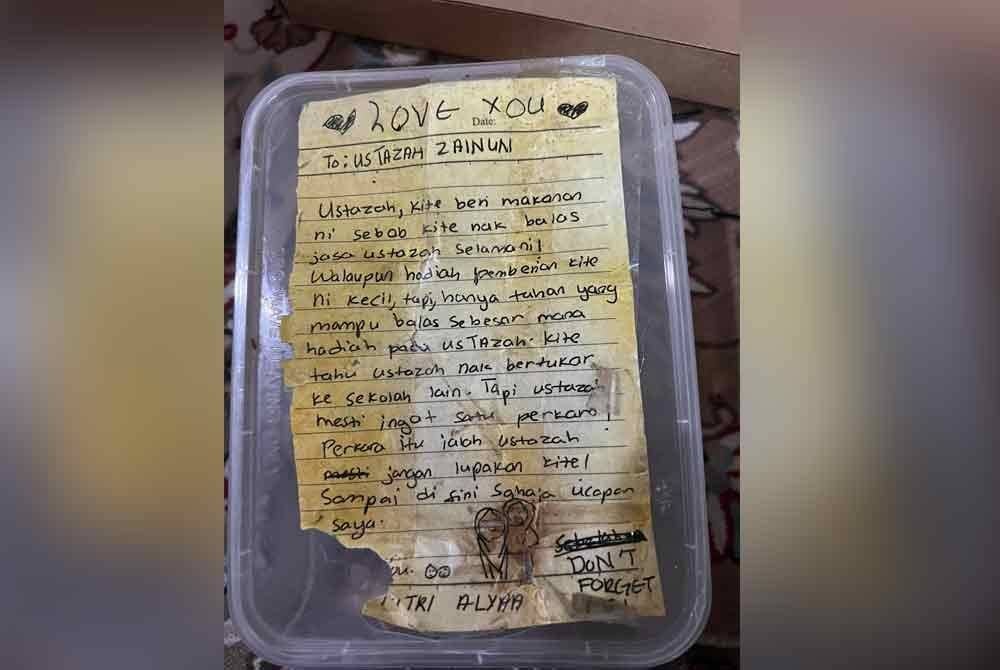 LOVE YOU
Date:
To: USTAZAH ZAINUN
Ustazah, kite beri makanan
ni sebab kite nak balas
jasa ustazah selamani!
Walaupun hadiah pemberian kite
ni kecil, tapi, hanya tuhan yang
mampu balas sebesar mana
hadiah pada usTAzah. kite
tahu ustazah nak bertukar
ke sekolah lain. Tapi ustazah
mesti ingat satu perkara!
Perkara itu ialah ustazah
mesti jangan lupakan kite!
Sampai di sini sahaja ucapan
saya.
DON'T
FORGET
TRI ALYAA